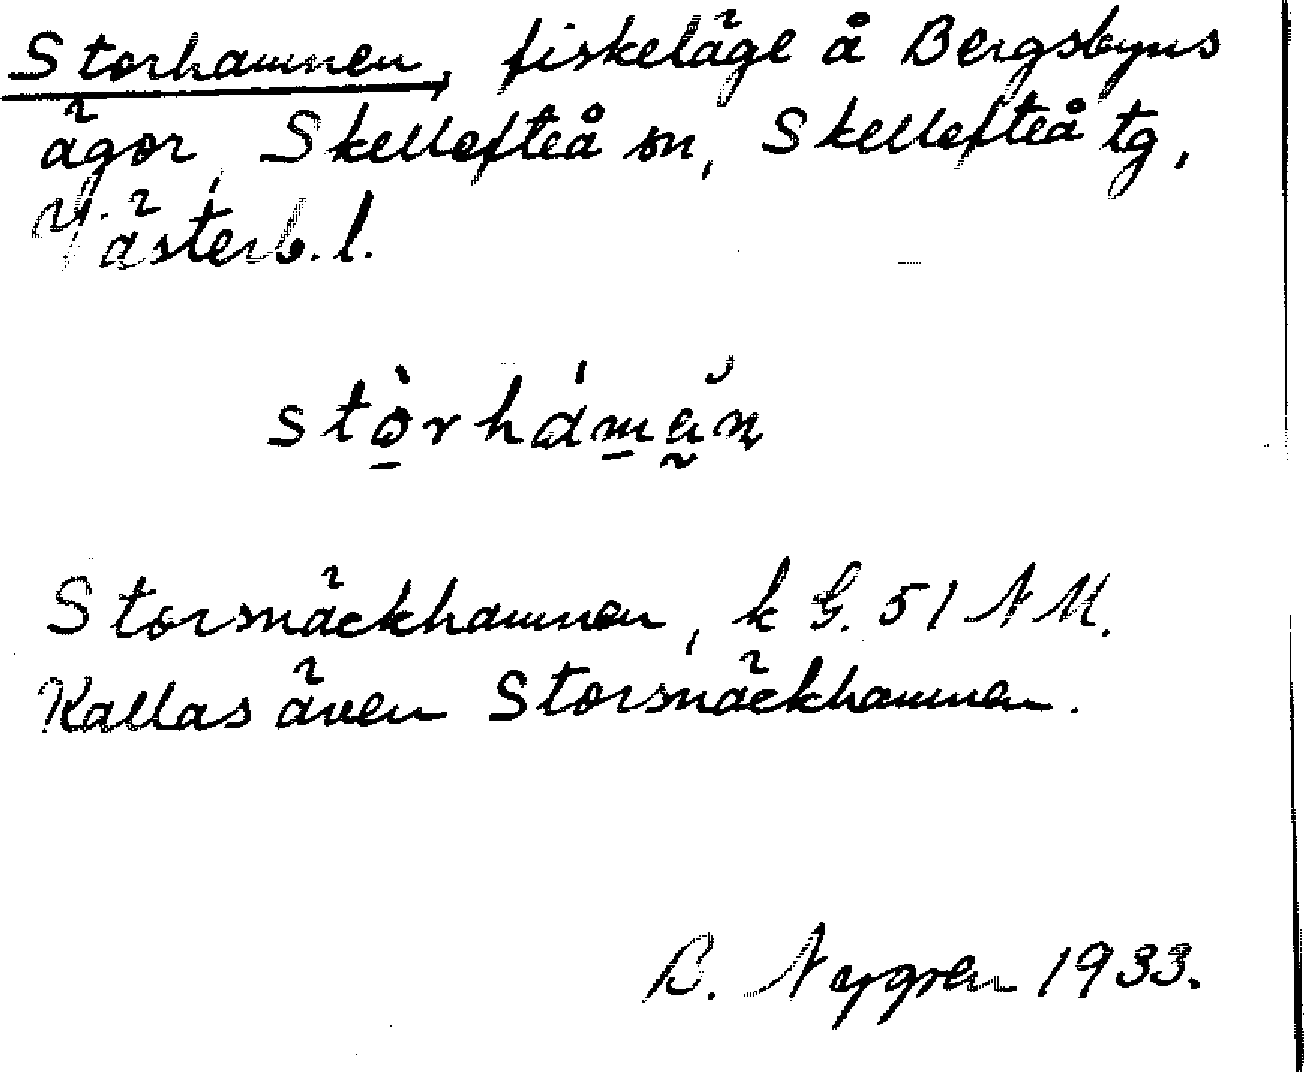 Storhamnen, fiskeläge å Bergsbyns
ägor, Skellefteå sn, Skellefteå tg,
Västerb. l.
stòrháman
Storsnäckhamnen, k G. 51 NM.
Kallas även Storsnäckhamnen.
B. Nygren 1933.